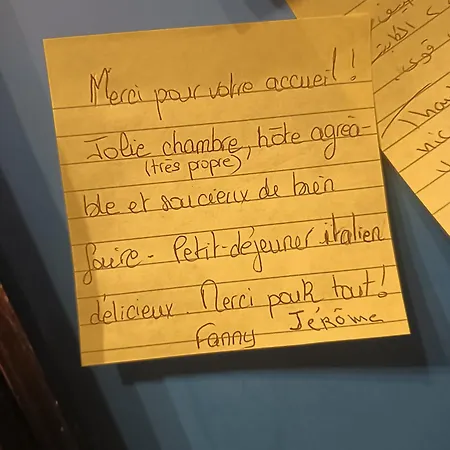 Merci pour votre accueil !
Jolie chambre, hôte agréa-
(très propre)
ble et soucieux de bien
faire - Petit-déjeuner italien
délicieux. Merci pour tout !
Fanny Jérôme